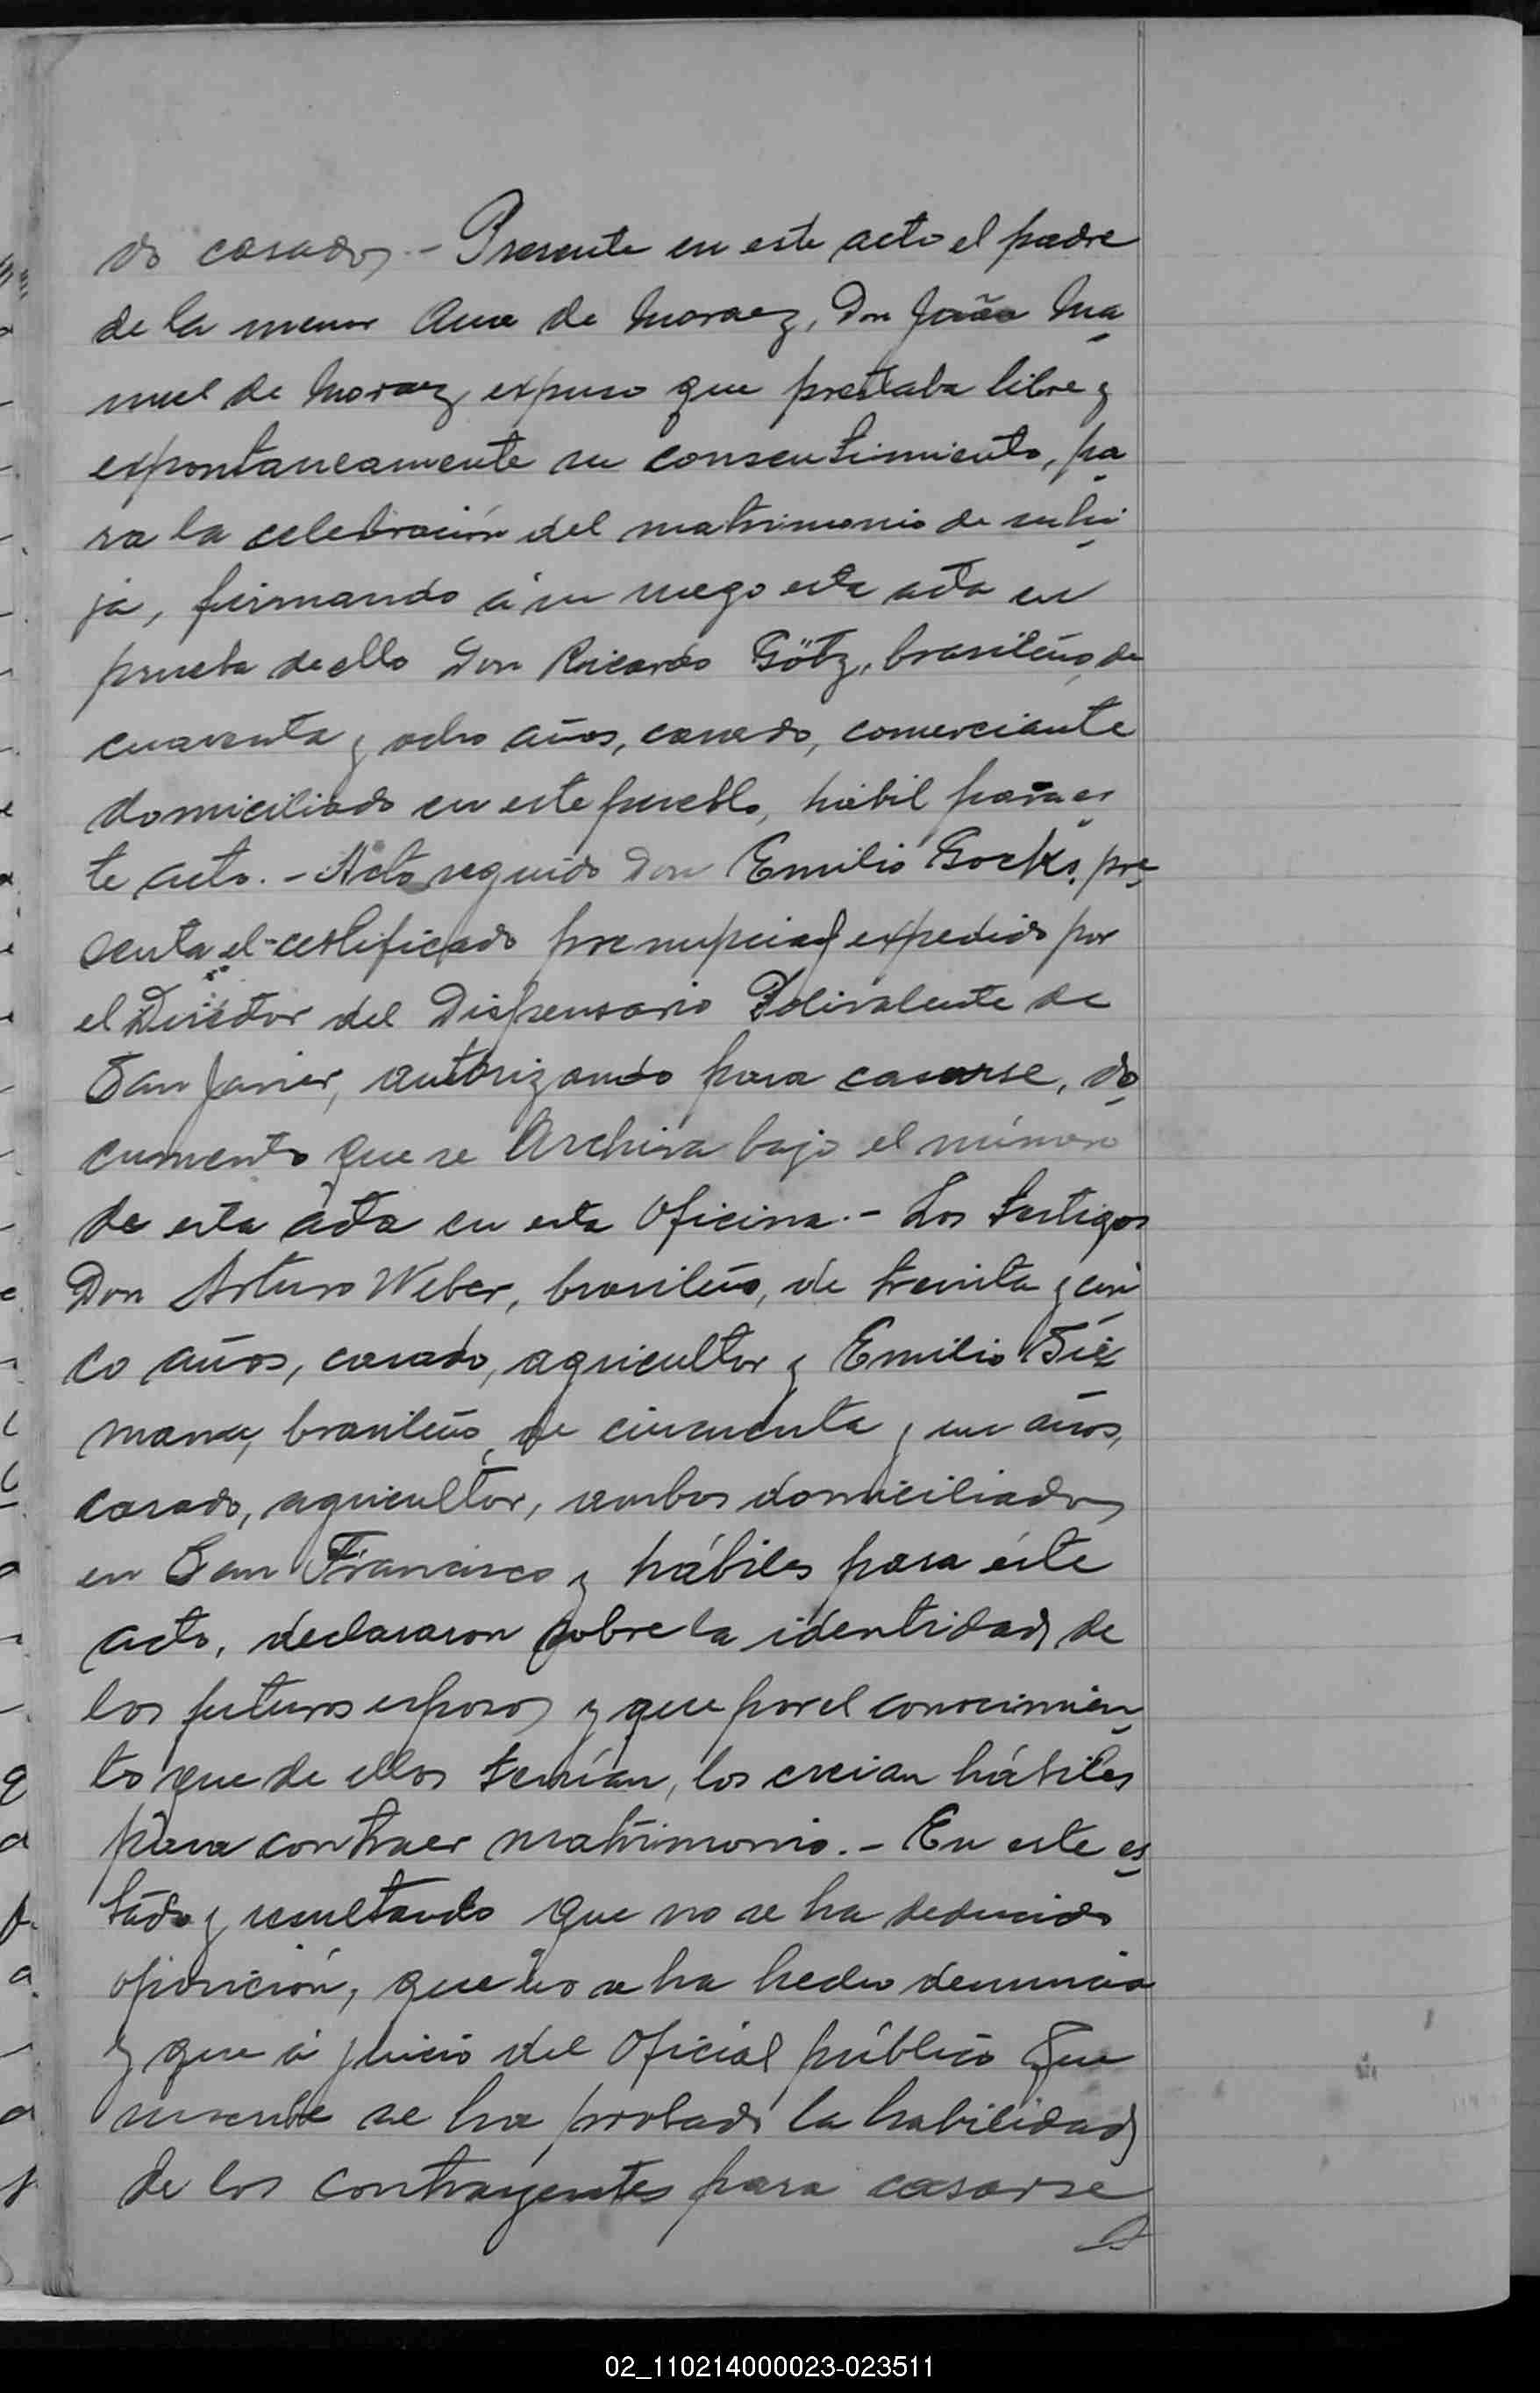 do casados.- Presente en este acto el padre
de la menor Ana de Moraez, Don João Ma
nuel de Moraez, expuso que prestaba libre y
expontaneamente su consentimiento, pa
ra la celebración del matrimonio de su hi
ja, firmando á su ruego esta acta en
prueba de ello Don Ricardo Götz, brasileño, de
cuarenta y ocho años, casado, comerciante
domiciliado en este pueblo, hábil para es
te acto.- Acto seguido Don Emilio Gocks, pre
senta el certificado prenupcial expedido por
el Director del Dispensario Polivalente de
San Javier, autorizando para casarse, do
cumento que se Archiva bajo el número
de esta acta en esta Oficina.- Los testigos
Don Arturo Weber, brasileño, de treinta y cin
co años, casado, agricultor y Emilio
brasileño, de cincuenta y un años,
casado, agricultor, ambos domiciliados
en San Francisco y hábiles para éste
acto, declararon sobre la identidad de
los futuros esposos y que por el conocimien
to que de ellos tenían, los creian hábiles
para contraer matrimonio.- En este es
tado y resultando que no se ha deducido
oposición, que no se ha hecho denuncia
y que á juicio del Oficial público que
suscribe se ha probado la habilidad
de los contrayentes para casarse
02_110214000023-023511